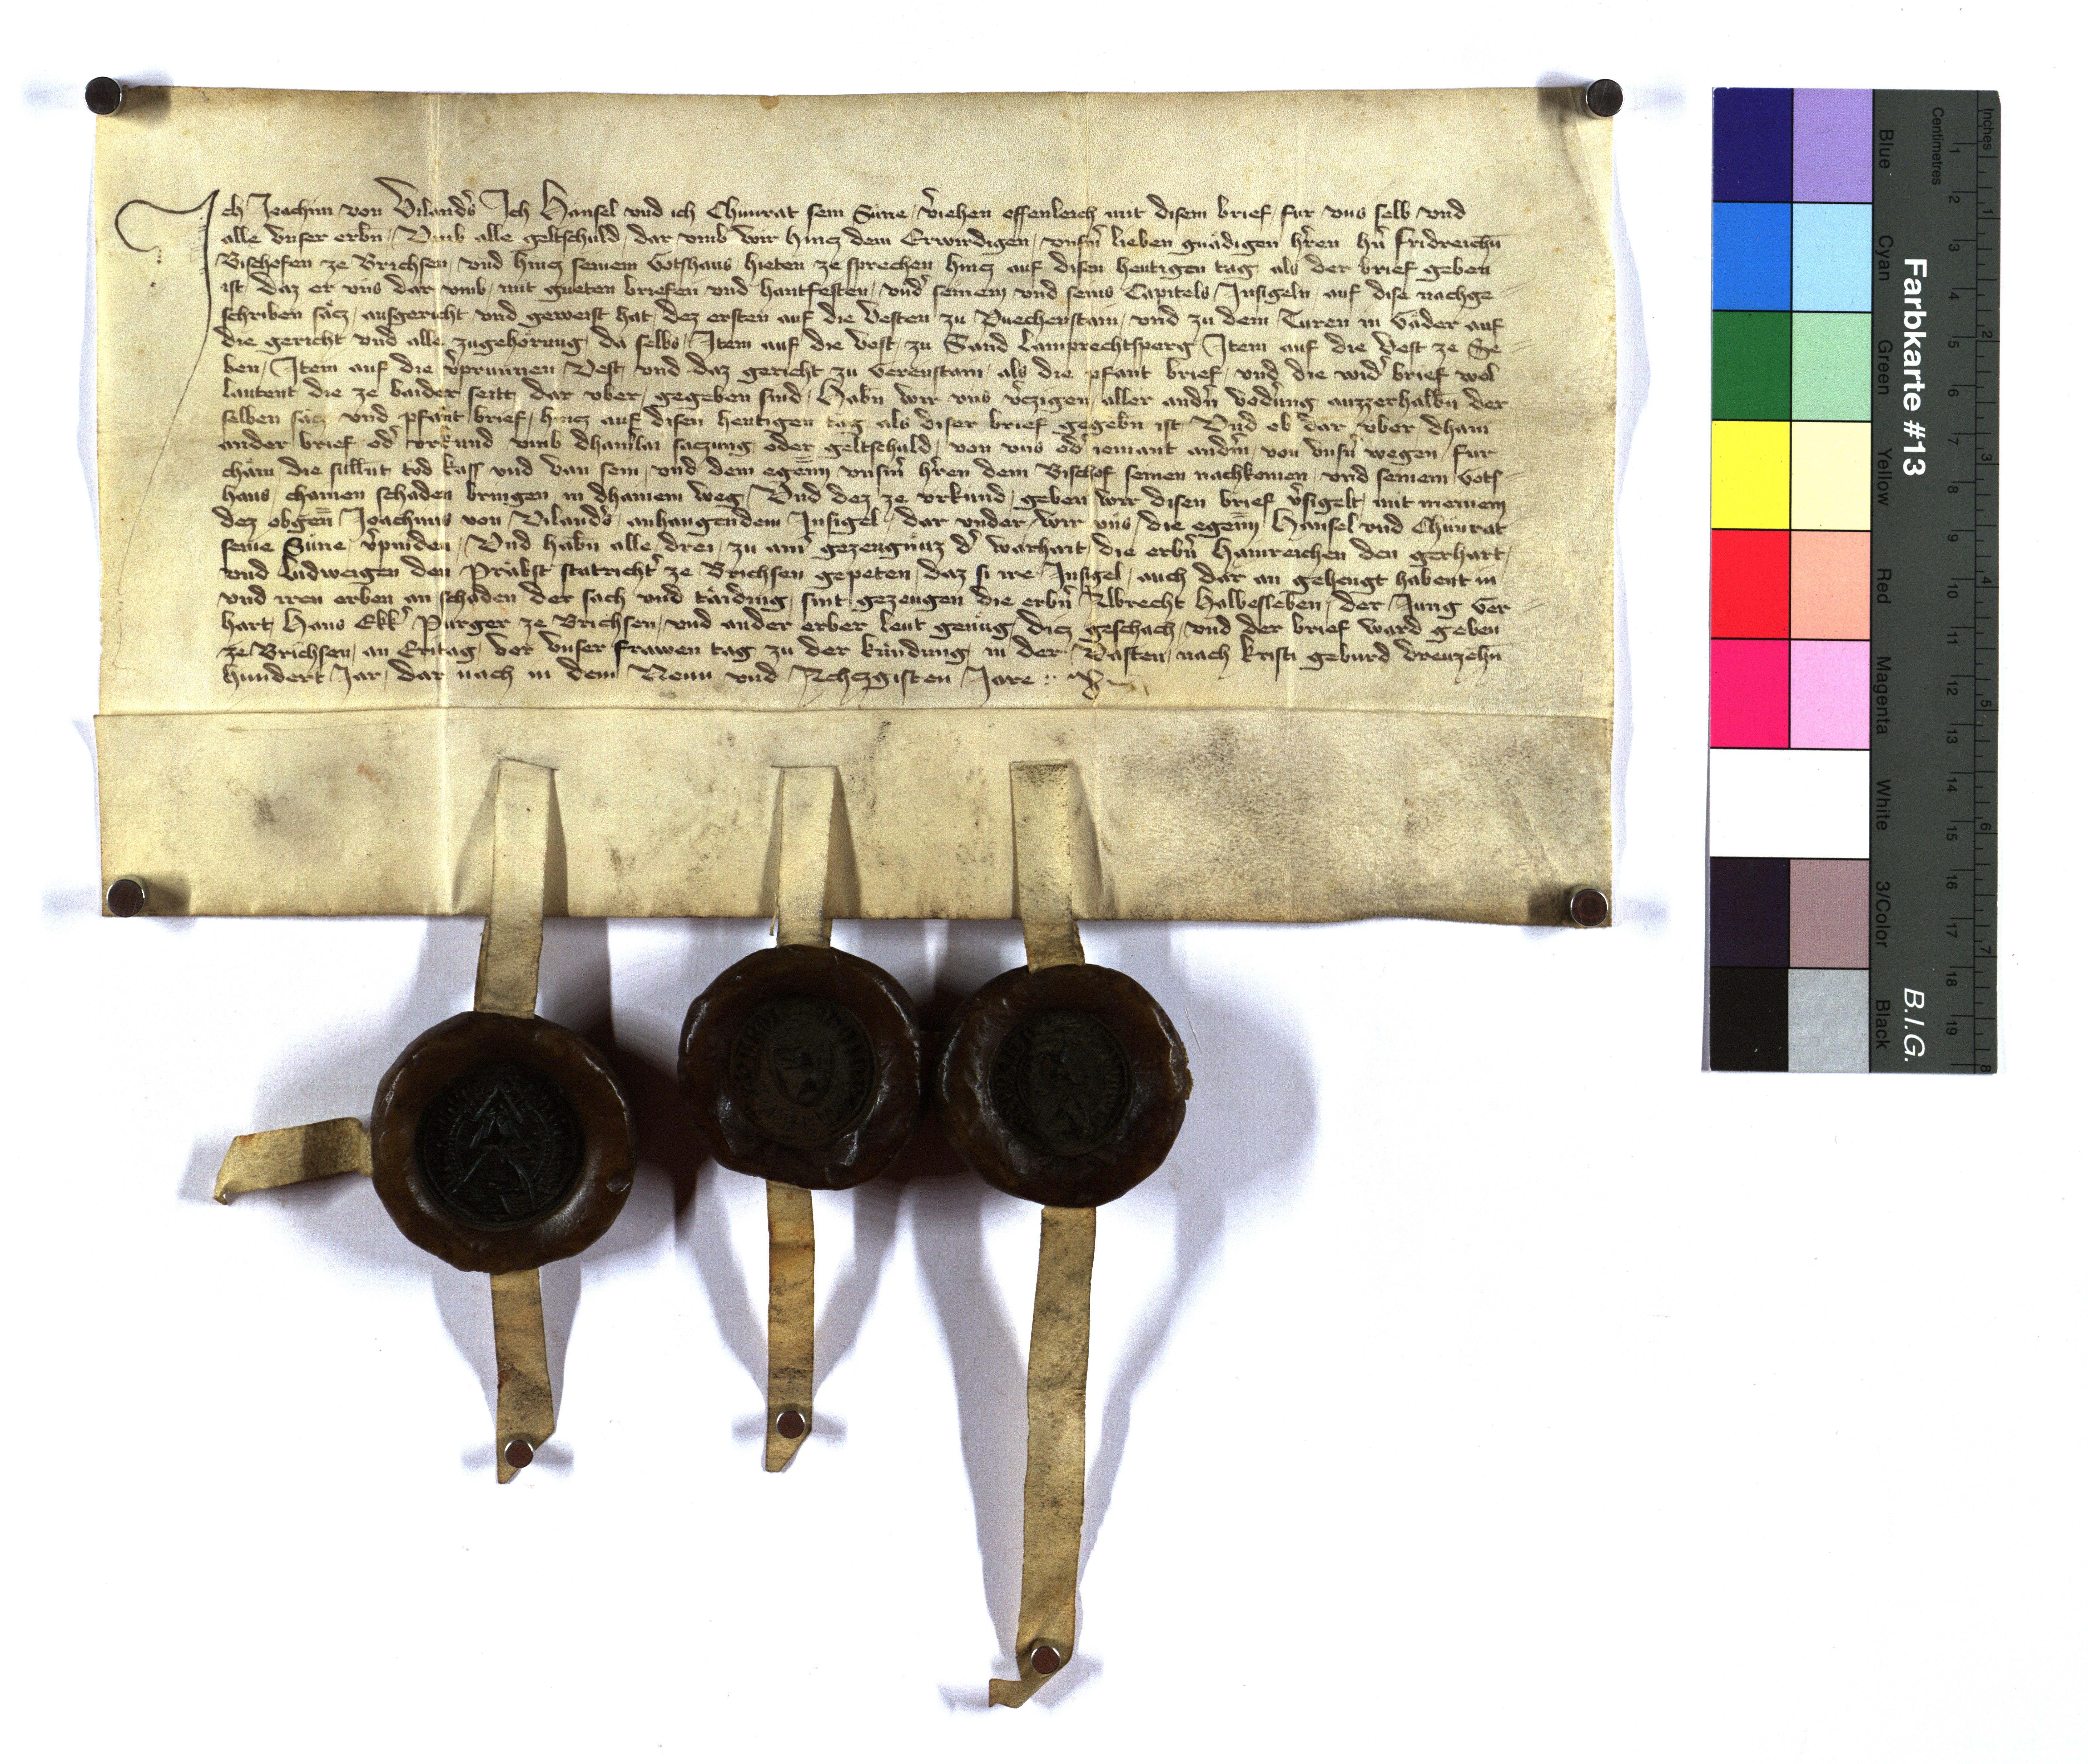 Ich Joachim von Vilanders Ich Hänsel vnd ich Chunrat sein Süne v̾iehen offenleich mit disem brief fur vns selb vnd
alle vnser erbn̄ Vmb alle geltschuld dar vmb wir hincz dem Erwirdigen vnserm lieben gnädigen h̾ren h̾n fridreichn̄
Bischofen ze Brichsen vnd hincz seinem Gotshaus hieten ze sprechen hincz auf disen heutigen tag als der brief geben
ist daz er vns dar vmb mit gueten briefen vnd hantfesten vnd̾ seinem vnd seins Capitels Insigeln auf dise nachge
schriben säcz ausgericht vnd geweist hat dez ersten auf die Vesten zu Puechenstain vnd zu dem Turen in Gäder auf
die gericht vnd alle zugehörung da selbs Item auf die Vest zu Sand Lamprechtsperg Item auf die Vest ze Se
ben Item auf die v̾prunnen Vest vnd daz gericht zu Verenstain als die pfant brief vnd die wid̾ brief wol
lautent die ze baider seitt dar vber gegeben sind Habn̄ wir vns v̾czigen aller andn̾ vodrūng auzzerhalbn̄ der
selben säcz vnd pfant brief hincz auf disen heutigen tag als diser brief gegebn̄ ist Vnd ob dar vber dhain
ander brief od̾ vrkund vmb dhainlai saczung oder geltschuld von vns od̾ iemant andm̾ von vnsn̾ wegen fur
cham die sullent tod kass vnd van sein vnd dem egen̄n vnsm̾ h̾ren dem Bischof seinen nachkomen vnd seinem Gots
haus chainen schaden bringen in dhainem weg Vnd dez ze vrkund geben wir disen brief v̾sigelt mit meinem
dez obgen̄ Joachims von Vilanders anhangendem Insigel dar vnder wir vns die egen̄n Hänsel vnd Chunrat
seine Süne v̾pinden Vnd habn̄ alle drei zu ain̾ gezeugnüz d̾ warhait die erbn̾ Hainreichen den gerhart
vnd Ludweigen den Präbst statricht̾ ze Brichsen gepeten daz si ire Insigel auch dar an gehengt habent in
vnd iren erben an schaden der sach vnd täiding sint gezeugen die erbn̾ Albrecht Halbesleben der Jung Ger
hart Hans Ekk̾ Purger ze Brichsen vnd ander erber leut genüg dicz geschach vnd der brief ward geben
ze Brichsen an Eritag vor vnser frawen tag zu der kündung in der Vasten nach kristi geburd dreuzehn
hundert Jar dar nach in dem Neun vnd Achczgisten Jare
Farbkarte #13
B.I.G.
Inches
Centimetres
Blue
Cyan
Green
Yellow
Red
Magenta
White
3/Color
Black
1 2 3 4 5 6 7 8 9 10 11 12 13 14 15 16 17 18 19
1 2 3 4 5 6 7 8